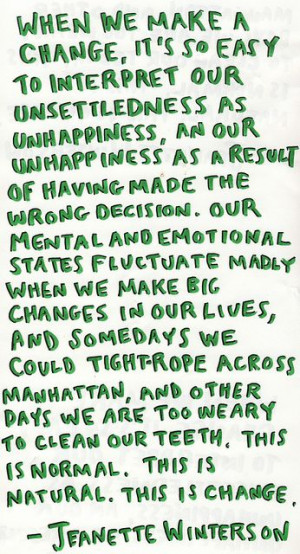 WHEN WE MAKE A
CHANGE, IT'S SO EASY
TO INTERPRET OUR
UNSETTLEDNESS AS
UNHAPPINESS, AN OUR
UNHAPPINESS AS A RESULT
OF HAVING MADE THE
WRONG DECISION. OUR
MENTAL AND EMOTIONAL
STATES FLUCTUATE MADLY
WHEN WE MAKE BIG
CHANGES IN OUR LIVES,
AND SOMEDAYS WE
COULD TIGHT-ROPE ACROSS
MANHATTAN, AND OTHER
DAYS WE ARE TOO WEARY
TO CLEAN OUR TEETH. THIS
IS NORMAL. THIS IS
NATURAL. THIS IS CHANGE.
- JEANETTE WINTERSON